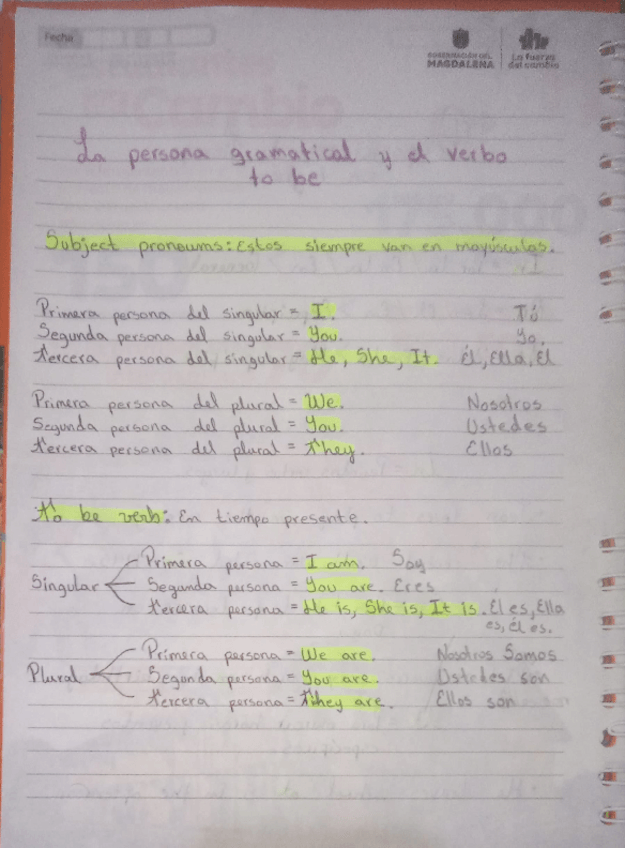 Fecha
GOBERNACIÓN DEL MAGDALENA
La fuerza del cambio
La persona gramatical y el verbo
to be
Subject pronoums: Estos siempre van en mayúsculas.
Primera persona del singular = I. Tú
Segunda persona del singular = You. Yo.
tercera persona del singular = He, She, It. Él, Ella, El
Primera persona del plural = We. Nosotros
Segunda persona del plural = You. Ustedes
tercera persona del plural = They. Ellos
To be verb: En tiempo presente.
Primera persona = I am. Soy
Singular Segunda persona = You are. Eres
tercera persona = He is, She is, It is. Él es, Ella
es, él es.
Primera persona = We are. Nosotros Somos
Plural Segunda persona = You are. Ustedes son
tercera persona = They are. Ellos son